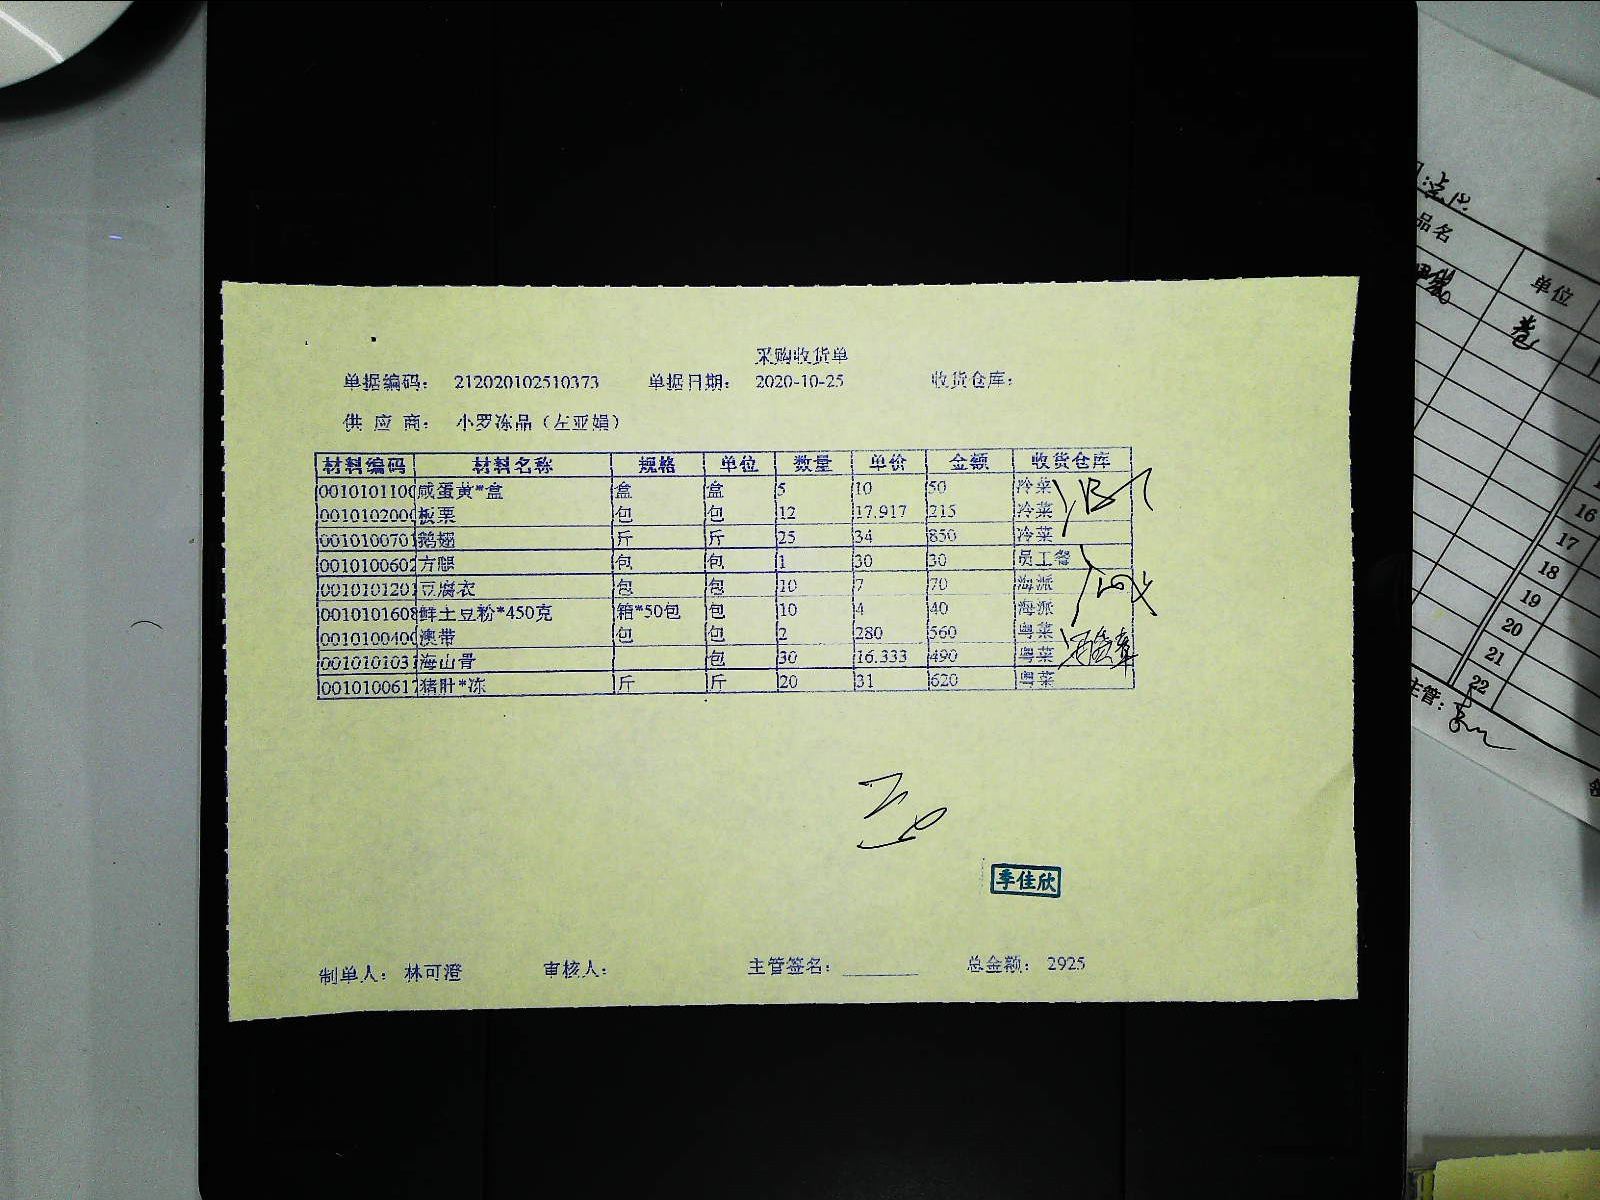 采购收货单
单据编码： 212020102510373 单据日期： 2020-10-25 收货仓库：
供 应 商： 小罗冻品（左亚娟）
材料编码 材料名称 规格 单位 数量 单价 金额 收货仓库
0010101100 咸蛋黄*盒 盒 盒 5 10 50 冷菜
0010102000 板栗 包 包 12 17.917 215 冷菜
0010100701 鹅翅 斤 斤 25 34 850 冷菜
0010100602 方腿 包 包 1 30 30 员工餐
0010101201 豆腐衣 包 包 10 7 70 海派
0010101608 鲜土豆粉*450克 箱*50包 包 10 4 40 海派
0010100400 澳带 包 包 2 280 560 粤菜
0010101031 海山骨 包 30 16.333 490 粤菜
0010100617 猪肚*冻 斤 斤 20 31 620 粤菜
季佳欣
制单人： 林可澄 审核人： 主管签名： 总金额： 2925
品名
单位
卷
16
17
18
19
20
21
22
主管：